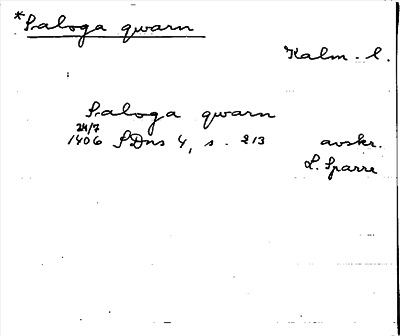 *Saloga qwarn
Kalm. l.
Saloga qwarn
24/7
1406 SDns 4, s. 213 avskr.
L. Sparre